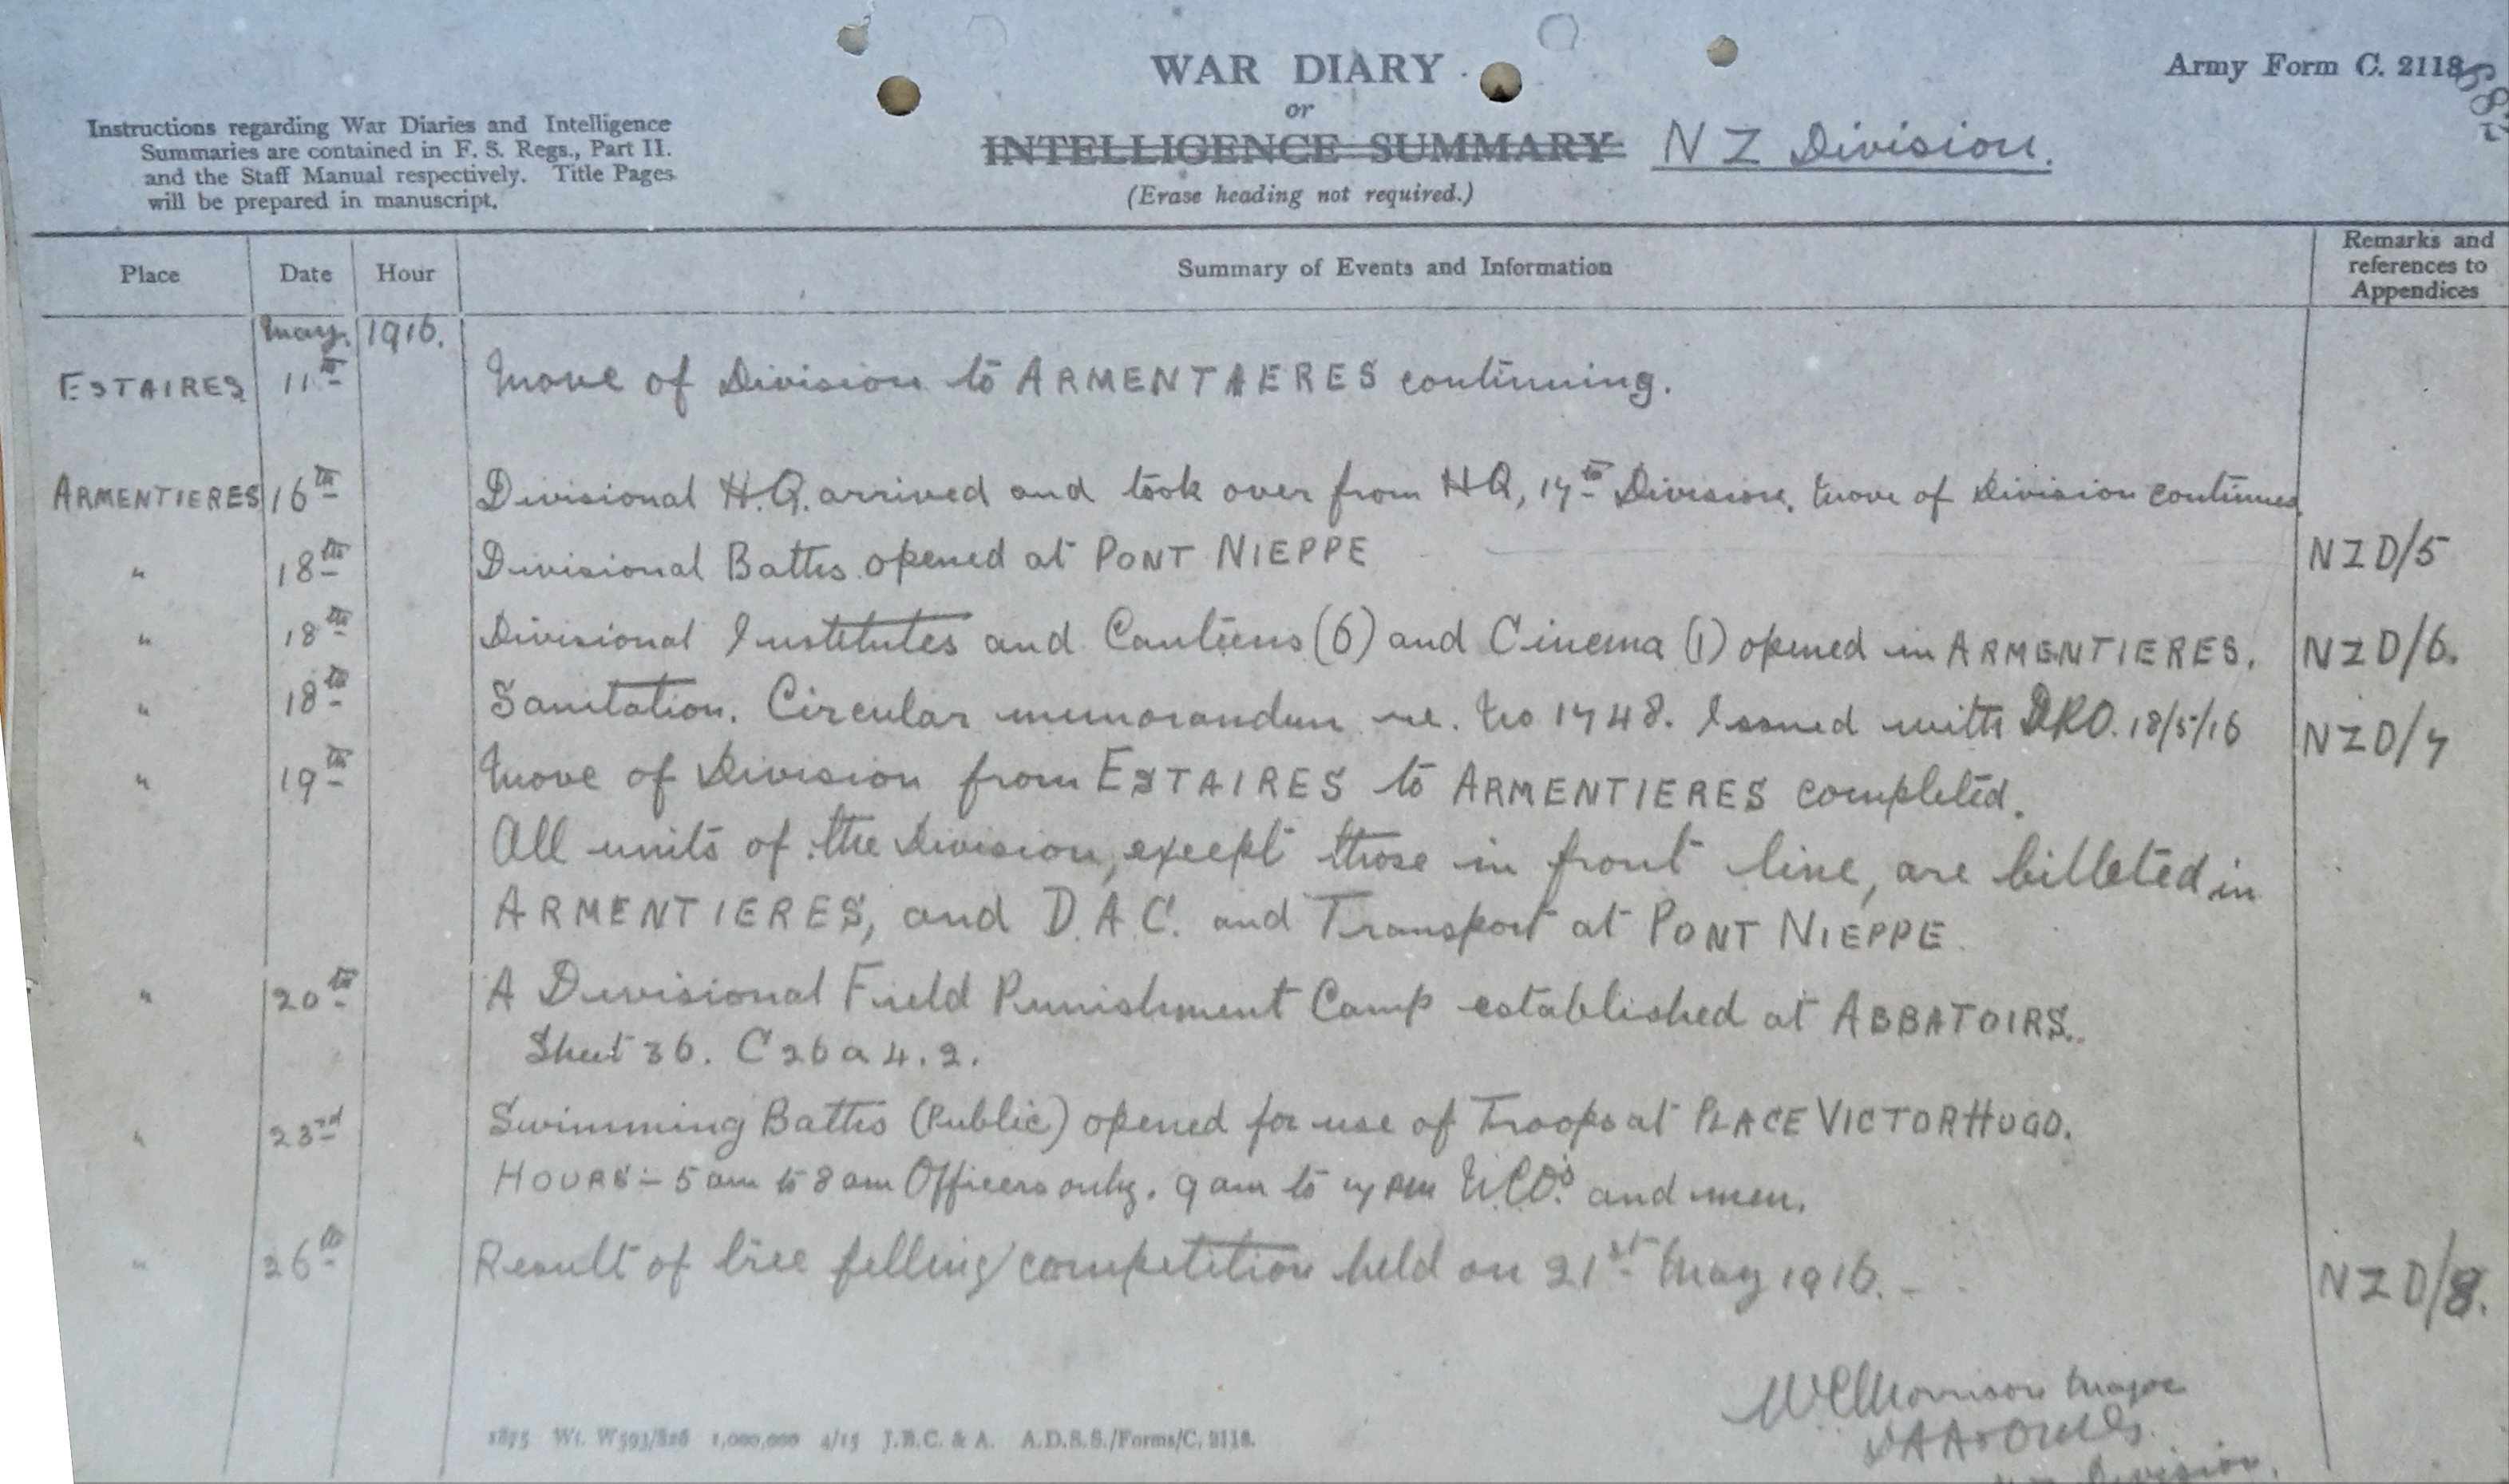 WAR DIARY
or
INTELLIGENCE SUMMARY NZ Division.
(Erase heading not required.)
Army Form C. 2118
Instructions regarding War Diaries and Intelligence
Summaries are contained in F. S. Regs., Part II.
and the Staff Manual respectively. Title Pages
will be prepared in manuscript.
Place Date Hour Summary of Events and Information Remarks and references to Appendices
May. 1916.
ESTAIRES 11th Move of Division to ARMENTAERES continuing.
ARMENTIERES 16th Divisional H.Q. arrived and took over from HQ, 17th Division. Move of Division continues.
" 18th Divisional Baths opened at PONT NIEPPE NZD/5
" 18th Divisional Institutes and Canteens (6) and Cinema (1) opened in ARMENTIERES. NZD/6.
" 18th Sanitation. Circular memorandum re. No 1748. Issued with DRO. 18/5/16 NZD/7
" 19th Move of Division from ESTAIRES to ARMENTIERES completed.
All units of the Division, except those in front line, are billeted in
ARMENTIERES, and D.A.C. and Transport at PONT NIEPPE.
" 20th A Divisional Field Punishment Camp established at ABBATOIRS.
Sheet 36. C26a4.2.
" 23rd Swimming Baths (Public) opened for use of Troops at PLACE VICTOR HUGO.
HOURS:- 5 am to 8 am Officers only. 9 am to 7 pm N.C.O's and men.
" 26th Result of tree felling competition held on 21st May 1916. - NZD/8.
Morrison Major
Division.
1875 Wt. W593/826 1,000,000 4/15 J.B.C. & A. A.D.S.S./Forms/C. 2118.